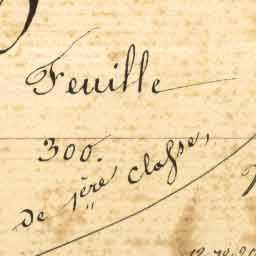 Feuille
300.
de 1ère classe,